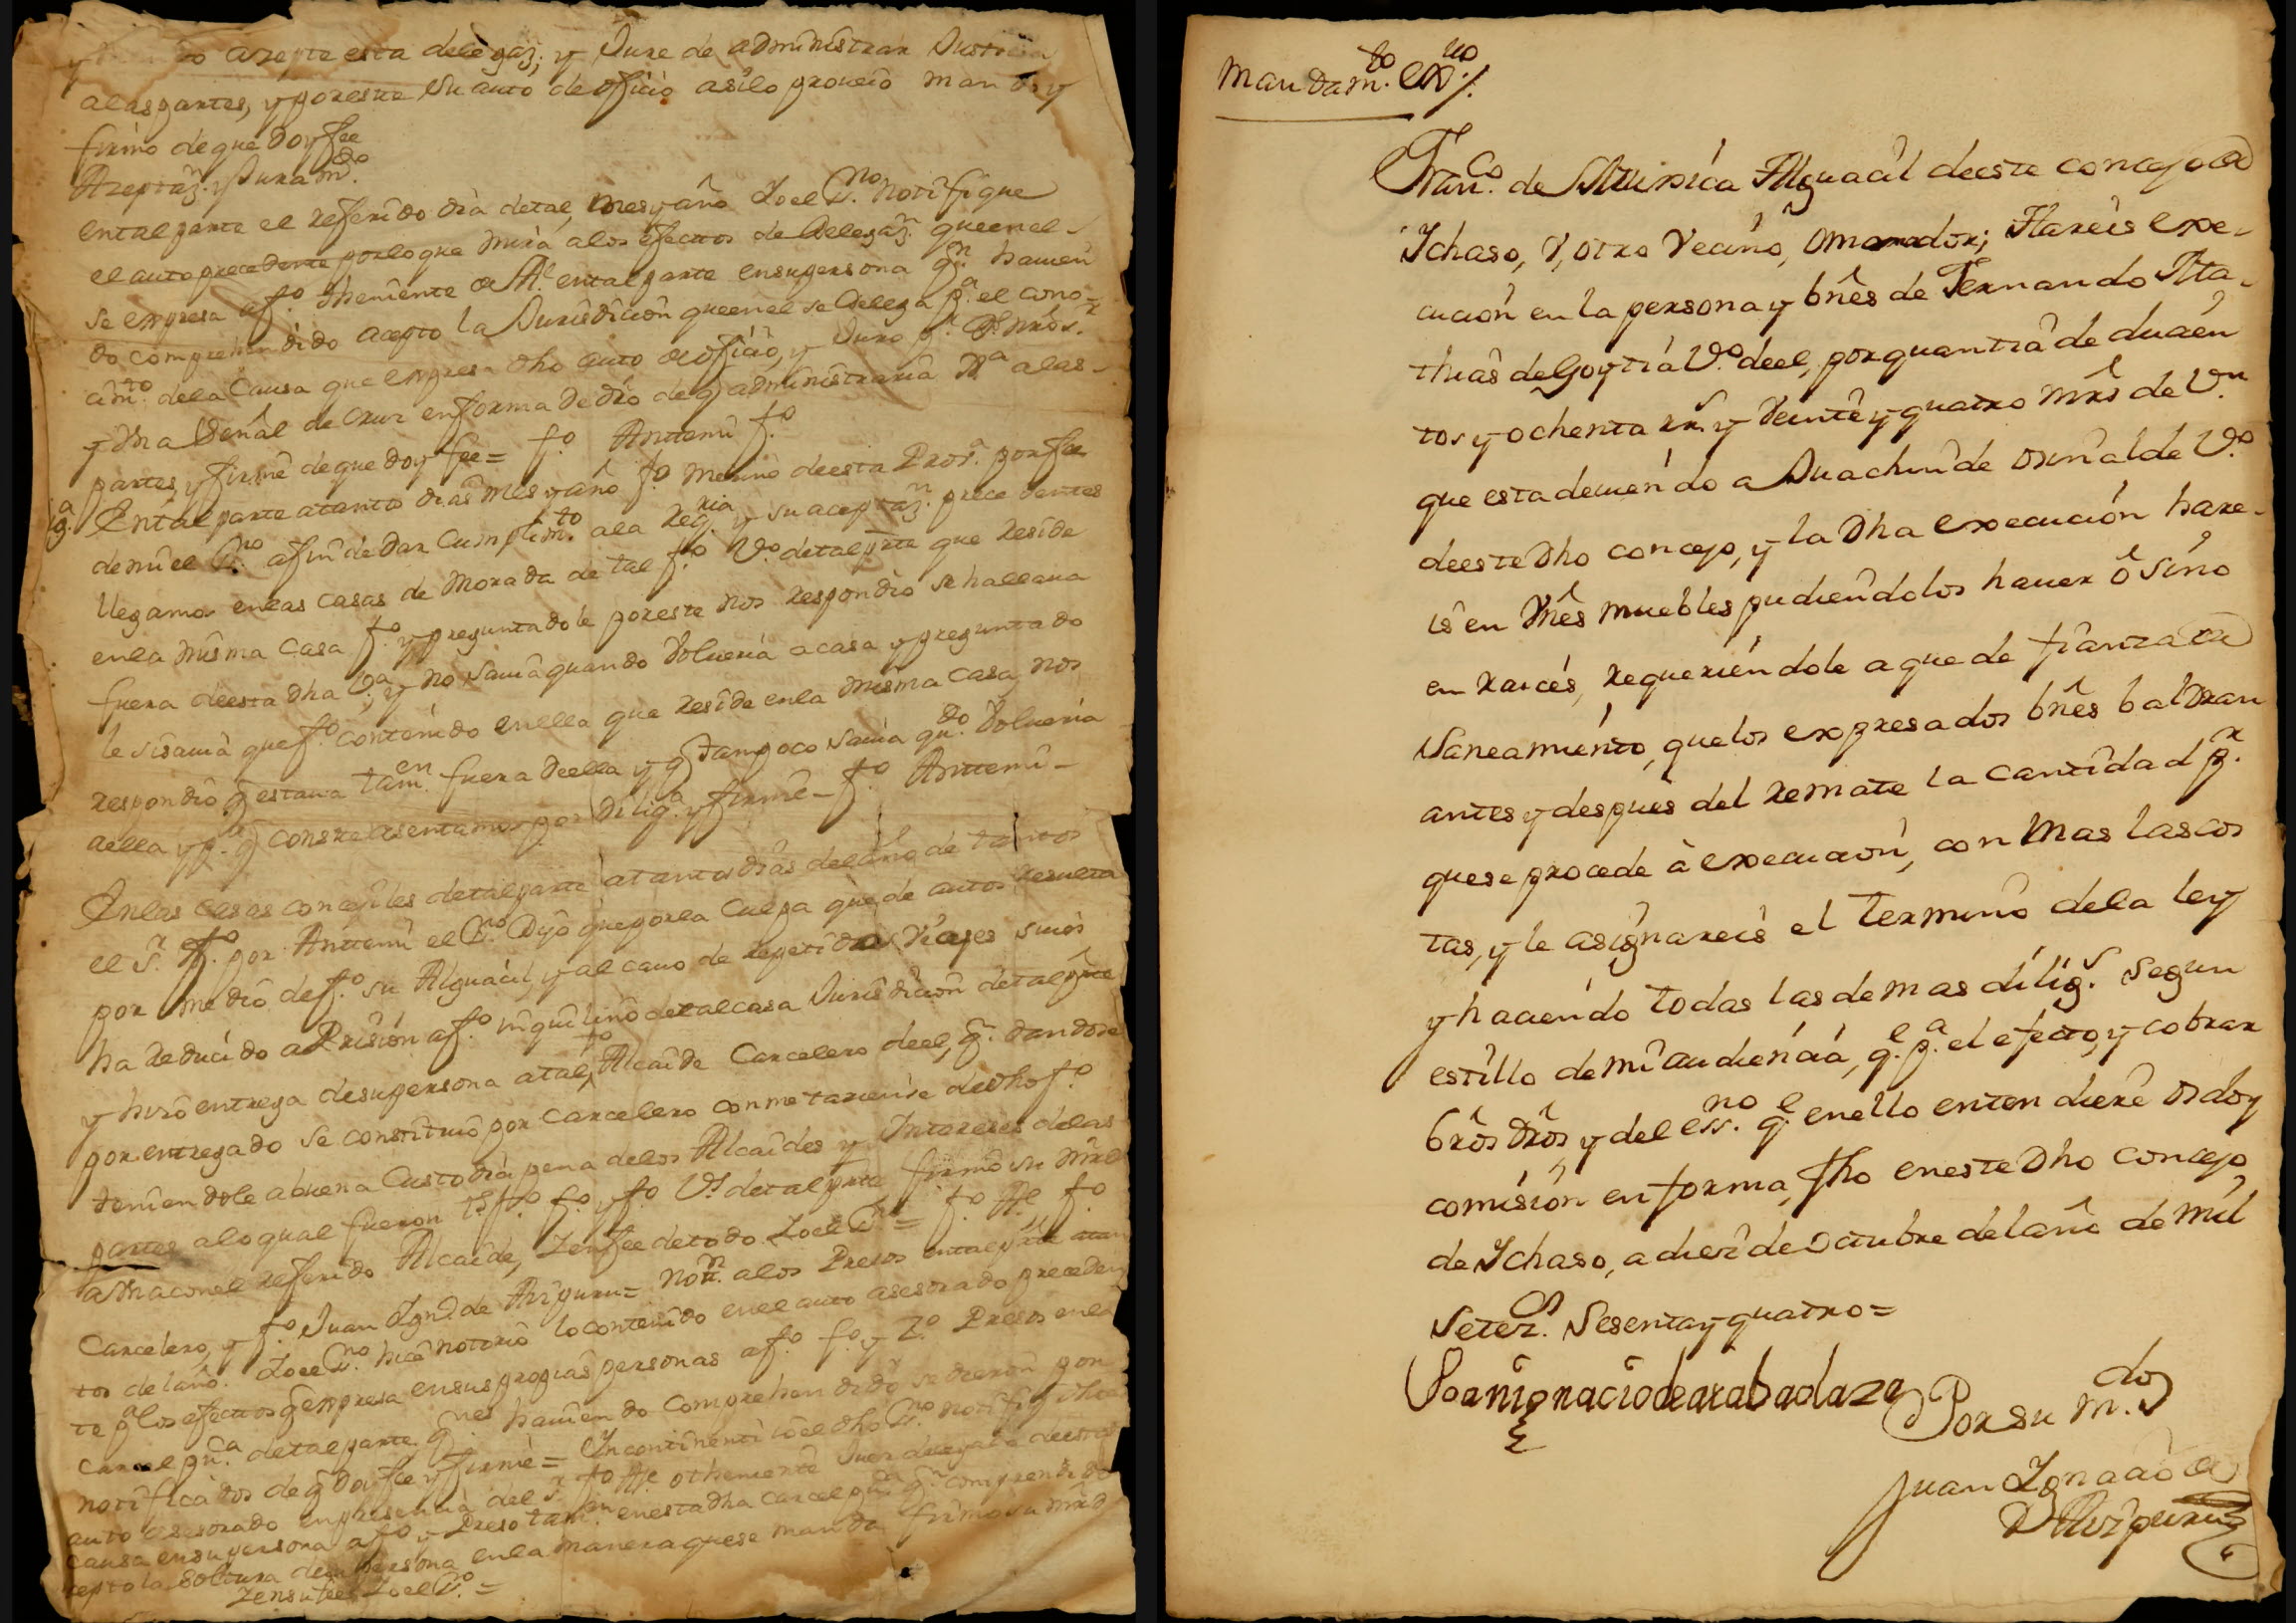 azepte esta delegaz.; y Jure de administrar Justicia
alas partes, y por este su auto de oficio asilo proveio mando y
firmo de que doy fee
Azeptaz.n y Juram.to
En tal parte el referido dia de tal, mes y año Yo el S.no notifique
el auto precedente por lo que mira alos efectos de delegaz.n que en el
se expresa a f.o theniente de Al.e en tal parte en su persona q.n havien
do comprehendido acepto la Jurisdicion que en el se delega p.a el cono=
cim.to dela Causa que expresa dho auto de oficio, y Juro p.r D.s nrô S.r
y Vna Señal de Cruz en forma de drô de q administraria J.a alas
partes, y firmé de que doy fee = f.o Anttemi f.o
En tal parte atantos dias mes y año f.o Merino de esta Prov.a por fee
de mi el S.no afin de dar Cumplim.to ala Reg.ria y su aceptaz.n precedentes
llegamos en las casas de Morada de tal f.o V.o de tal pte que reside
en la misma Casa f.o y preguntadole por este nos respondio se hallava
fuera de esta dha V.a, y no savia quando Volveria a casa y preguntado
le si savia que f.o contenido en ella que reside en la misma Casa, nos
respondio q estava tam.en fuera de ella y q tampoco savia qu.do Volveria
a ella y p.a q conste lo sentamos por Dilig.a y firmé = f.o Anttemi =
En las casas concejiles de tal parte atantos dias del año de tantos
el S.r f.o por Anttemi el S.no Dijo que por la Culpa que de autos resulta
por medio de f.o su Alguacil, y al cavo de repetidos Viages suios
ha reducido a Prision a f.o inquilino de tal casa Jurisdicion de tal pte
y hizo entrega de su persona a tal f.o Alcaide Carcelero de el, q.n dandose
por entregado se constituio por carcelero comentariense de dho f.o
teniendole a buena Custodia pena delos Alcaides y Intereses delas
partes alo qual fueron t.s f.o f.o y f.o V.s de tal pte firmó su mrd
a Vna con el referido Alcaide, y en fee de todo Yo el S.no = f.o Al.e f.o
Carcelero, y f.o Juan Ign.o de Azpuru = Not.n alos Presos en tal parte atan
tos del año. Yo el S.no hice notorio lo contenido en el auto asesorado preceden
te p.a los efectos q expresa en sus propias personas a f.o f.o y Z.o Presos en la
carcel pu.ca de tal parte q.nes haviendo Comprehendido se dieron por
notificados de q doy fee y firmé = Incontinenti Yo el dho S.no notifiq dho
auto asesorado en presencia del S.r f.o Al.e o theniente Juez delegado de esta
causa en su persona a f.o y Preso tam.en en esta dha carcel pu.ca q.n comprendido
cepto la Soltura de su persona en la manera que se manda firmo su mrd
y en su fee Yo el S.no =
Mandam.to ex.vo /.
Fran.co de Muxica Alguacil de este concejo de
Ychaso, V, otro Vecino, o morador; Hareis exe-
cucion en la persona y bnês de Fernando Ma-
thias de Goytia V.o de el, por quantia de ducien
tos y ochenta rr.s y Veinte y quatro mrs̃ de V.n
que esta deviendo a Juachin de oxinalde V.o
de este dho concejo, y la dha execucion hare-
is en Vnês muebles pudiendolos haver ô sino
en raices, requeriendole a que de fianza de
Saneamiento, que los expresados bnês baldran
antes y despues del remate la cantidad p.r
que se procede à execucion, con Mas las cos
tas, y le asignareis el termino dela ley
y haciendo todas las demas dilig.s Segun
estillo de mi audiencia, q.e p.a el efecto, y cobrar
brôs drôs y del ess.no q.e en ello entendiere os doy
comision en forma, fho en este dho concejo
de Ychaso, a diez de octubre del año de mil
Setez.os Sesenta y quatro =
Joan ignacio de arabaolaza
Por su m.do
Juan Ygnacio de
Azpuru